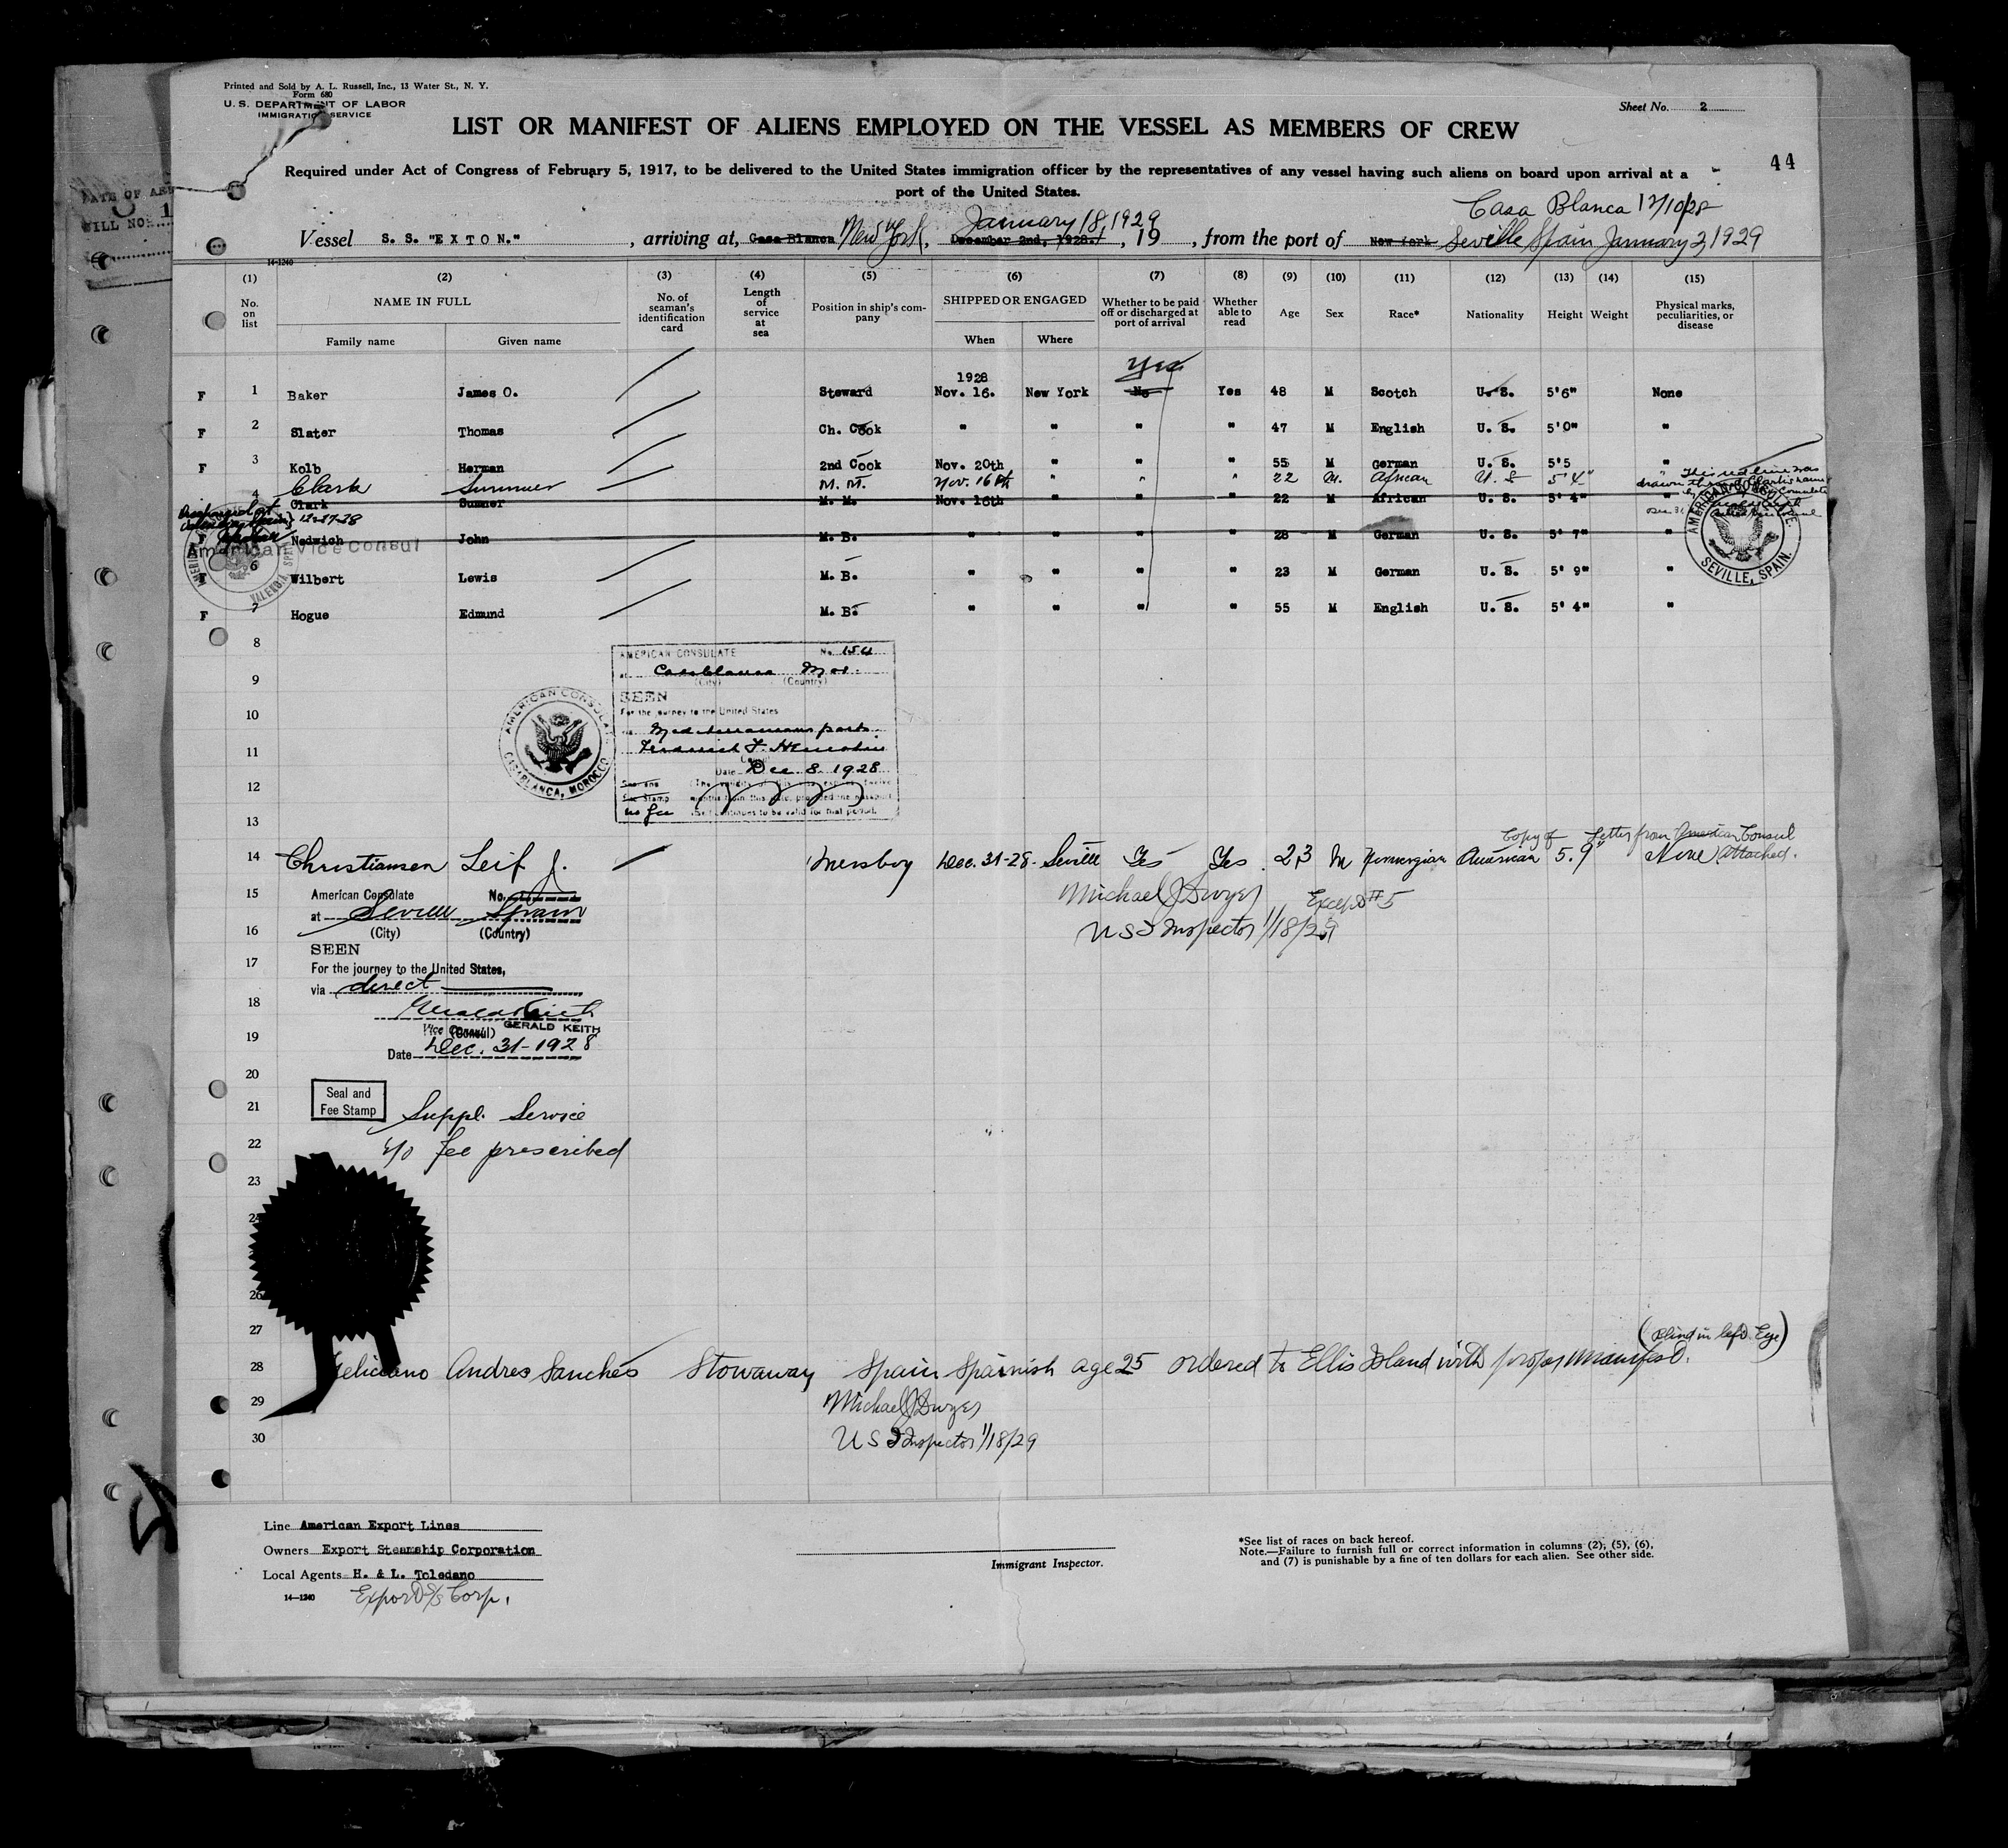 Printed and Sold by A. L. Russell, Inc., 13 Water St., N. Y.
Form 680
U. S. DEPARTMENT OF LABOR
IMMIGRATION SERVICE
Sheet No. 2
LIST OR MANIFEST OF ALIENS EMPLOYED ON THE VESSEL AS MEMBERS OF CREW
44
Required under Act of Congress of February 5, 1917, to be delivered to the United States immigration officer by the representatives of any vessel having such aliens on board upon arrival at a
port of the United States.
Casa Blanca 12/10/28
January 18, 1929
Vessel S. S. "EXTON." , arriving at, Casa Blanca New York, December 2nd, 1928. , 19 , from the port of New York Seville Spain January 2, 1929
14-1240
(1) (2) (3) (4) (5) (6) (7) (8) (9) (10) (11) (12) (13) (14) (15)
No. on list
NAME IN FULL
Family name
Given name
No. of seaman's identification card
Length of service at sea
Position in ship's company
SHIPPED OR ENGAGED
When
Where
Whether to be paid off or discharged at port of arrival
Whether able to read
Age
Sex
Race*
Nationality
Height
Weight
Physical marks, peculiarities, or disease
1928 Yes
F 1 Baker James O. Steward Nov. 16. New York No Yes 48 M Scotch U. S. 5'6" None
F 2 Slater Thomas Ch. Cook " " " " 47 M English U. S. 5'0" "
F 3 Kolb Herman 2nd Cook Nov. 20th " " " 55 M German U. S. 5'5 "
Clark Sumner M. M. Nov. 16th " " " 22 M. African U. S 5'4" "
4 Clark Sumner M. M. Nov. 16th " " " 22 M African U. S. 5' 4" "
This red line was
drawn through Clark's name
Discharged at
Valencia, Spain 12-27-28
American Vice Consul
F Nedwich John M. B. " " " " 28 M German U. S. 5' 7" "
6 Wilbert Lewis M. B. " " " " 23 M German U. S. 5' 9" "
F 7 Hogue Edmund M. B. " " " " 55 M English U. S. 5' 4" "
AMERICAN CONSULATE SEVILLE, SPAIN.
VALENCIA SPAIN
8
AMERICAN CONSULATE No. 154
at Casablanca Mor.
(City) (Country)
9
SEEN
10
For the journey to the United States
via Mediterranean ports
11
Date Dec. 8. 1928
12
Fee Stamp
No fee
AMERICAN CONSULATE CASABLANCA, MOROCCO
13
Copy of letter from American Consul
attached.
14 Christiansen Leif J. Messboy Dec. 31-28. Seville Yes Yes 23 M Norwegian American 5.9" None
15
Michael J Dwyer Except #5
16
U S I Inspector 1/18/29
American Consulate No.
at Seville Spain
(City) (Country)
SEEN
17
For the journey to the United States,
via direct
18
Vice (Consul) GERALD KEITH
19
Date Dec. 31-1928
20
Seal and
Fee Stamp
21
Suppl. Service
22
No fee prescribed
23
26
27
(Blind in left Eye)
28 Feliciano Andres Sanches Stowaway Spain Spainish age 25 ordered to Ellis Island with proper manifest.
29
Michael J Dwyer
30
U S I Inspector 1/18/29
Line American Export Lines
Owners Export Steamship Corporation
Local Agents H. & L. Toledano
14—1240 Export S/S Corp.
Immigrant Inspector.
*See list of races on back hereof.
Note.—Failure to furnish full or correct information in columns (2), (5), (6),
and (7) is punishable by a fine of ten dollars for each alien. See other side.